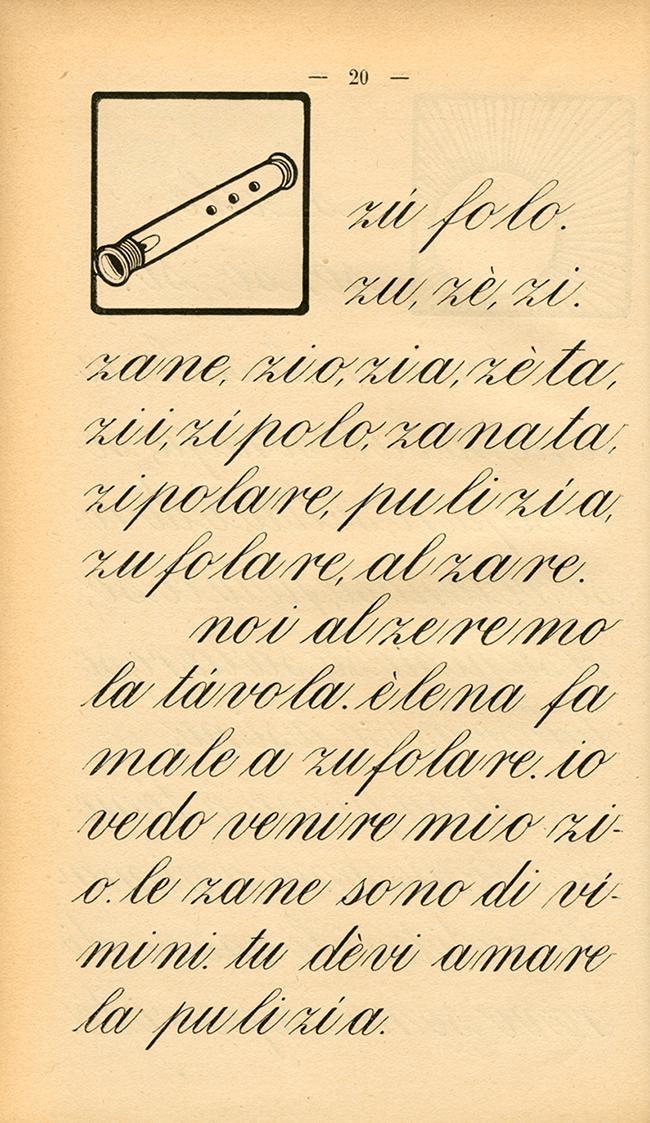 — 20 —
zú folo.
zu, zè, zi.
zane, zio, zia, zèta,
zii, zípolo, zanata,
zipolare, pulizía,
zufolare, alzare.
noi alzeremo
la távola. èlena fa
male a zufolare. io
vedo venire mio zi-
o. le zane sono di ví-
mini. tu dèvi amare
la pulizía.